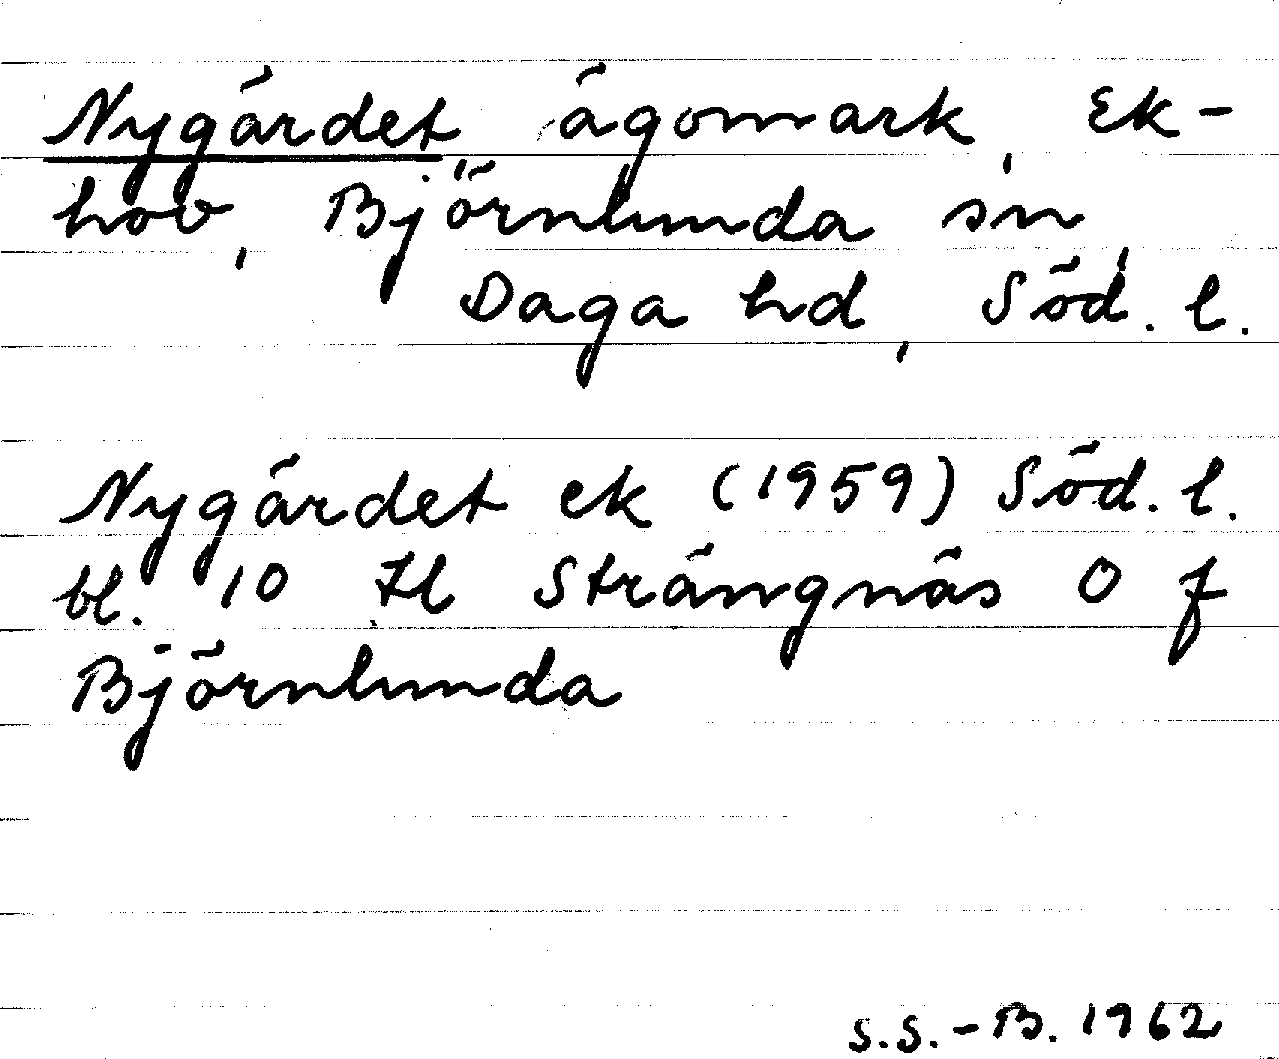 Nygärdet, ägomark, Ek-
hov, Björnlunda sn,
Daga hd, Söd. l.
Nygärdet ek (1959) Söd. l.
bl. 10 Hl Strängnäs O f
Björnlunda
S.S.-B. 1962